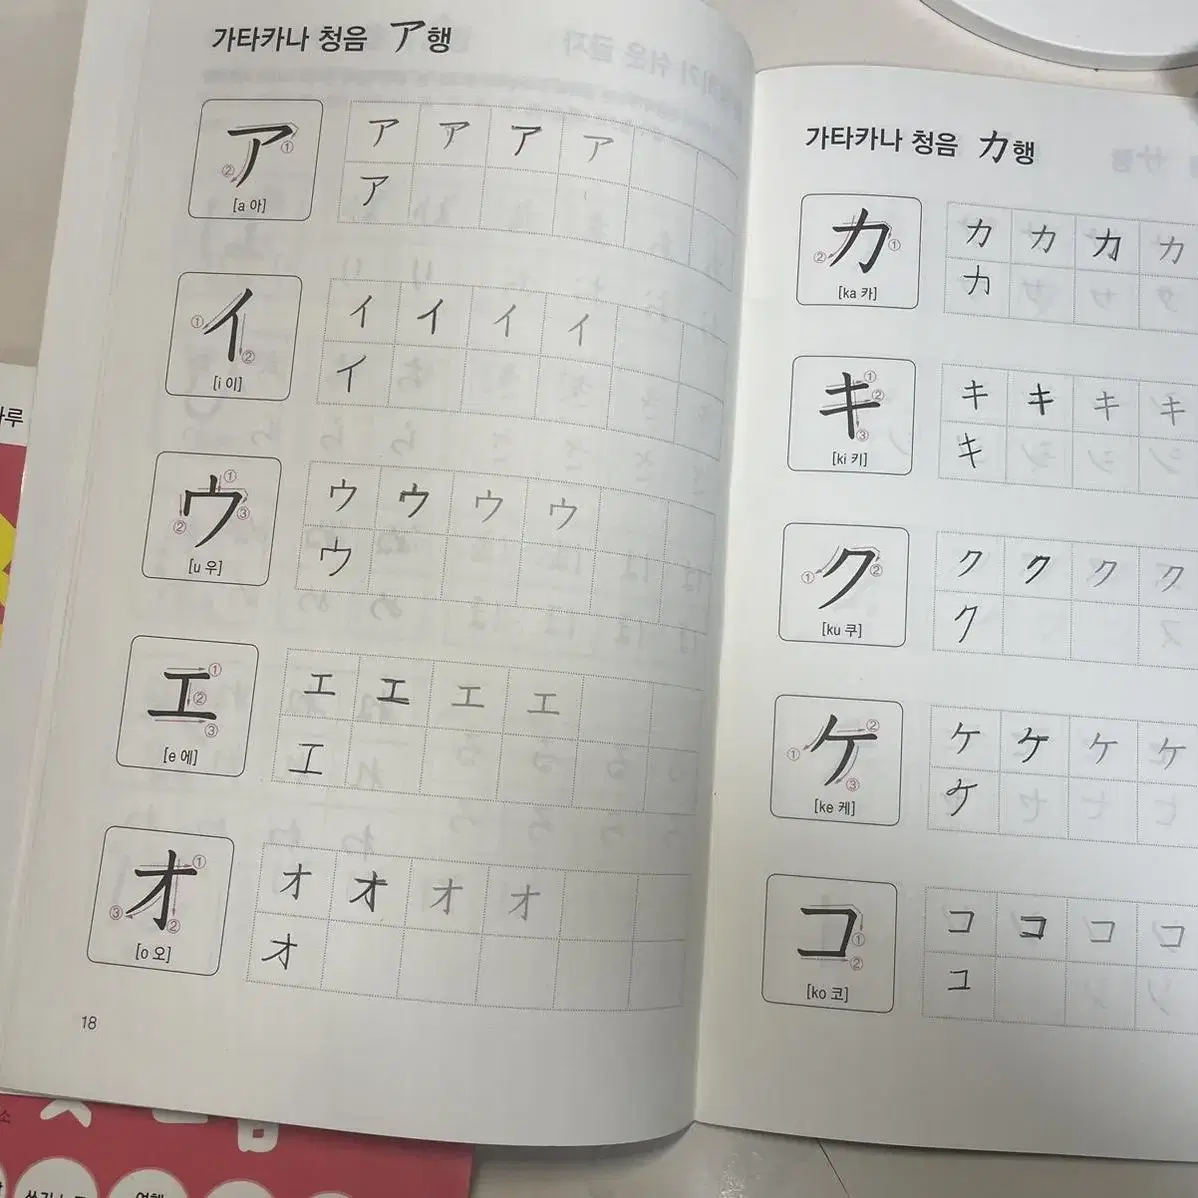 가타카나 청음 ア행
ア ① ②
[a 아]
ア ア ア ア
ア
イ ① ②
[i 이]
イ イ イ イ
イ
ウ ① ② ③
[u 우]
ウ ウ ウ ウ
ウ
エ ① ② ③
[e 에]
エ エ エ エ
エ
オ ① ② ③
[o 오]
オ オ オ オ
オ
18
가타카나 청음 カ행
カ ① ②
[ka 카]
カ カ カ カ
カ
キ ① ② ③
[ki 키]
キ キ キ キ
キ
ク ① ②
[ku 쿠]
ク ク ク ク
ク
ケ ① ② ③
[ke 케]
ケ ケ ケ ケ
ケ
コ ① ②
[ko 코]
コ コ コ コ
コ